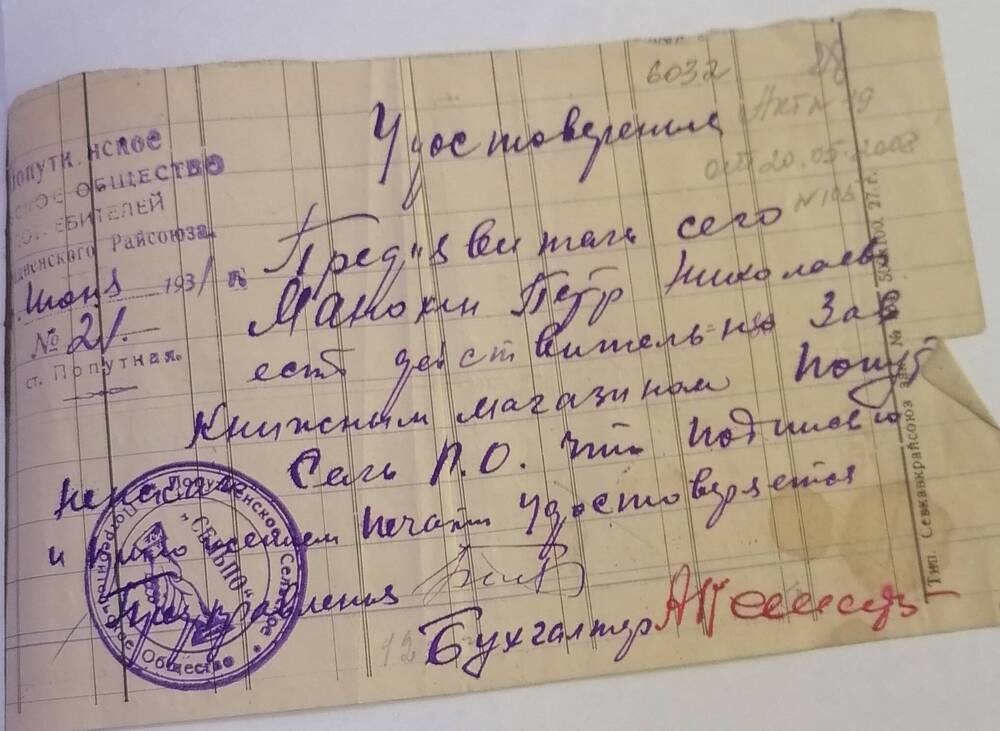 6032
28
Удостоверение
Акт № 19
от 20.05.2008
№ 103
ПОПУТНЕНСКОЕ
СКОЕ ОБЩЕСТВО
ПОТРЕБИТЕЛЕЙ
аненского Райсоюза.
июня 1931 г.
№ 21.
ст. Попутная.
Пред'явитель сего
Манохин Пётр Николаев
ест действительно Зав
Книжным магазином Попут
ненского Сель П.О. что подписью
и приложением печати удостоверяется
Пред правления
Бухгалтер
Попутненское Сельское
Потребительское Общество
"СЕЛЬПО"
Тип. Севкавкрайсоюз
27 г.